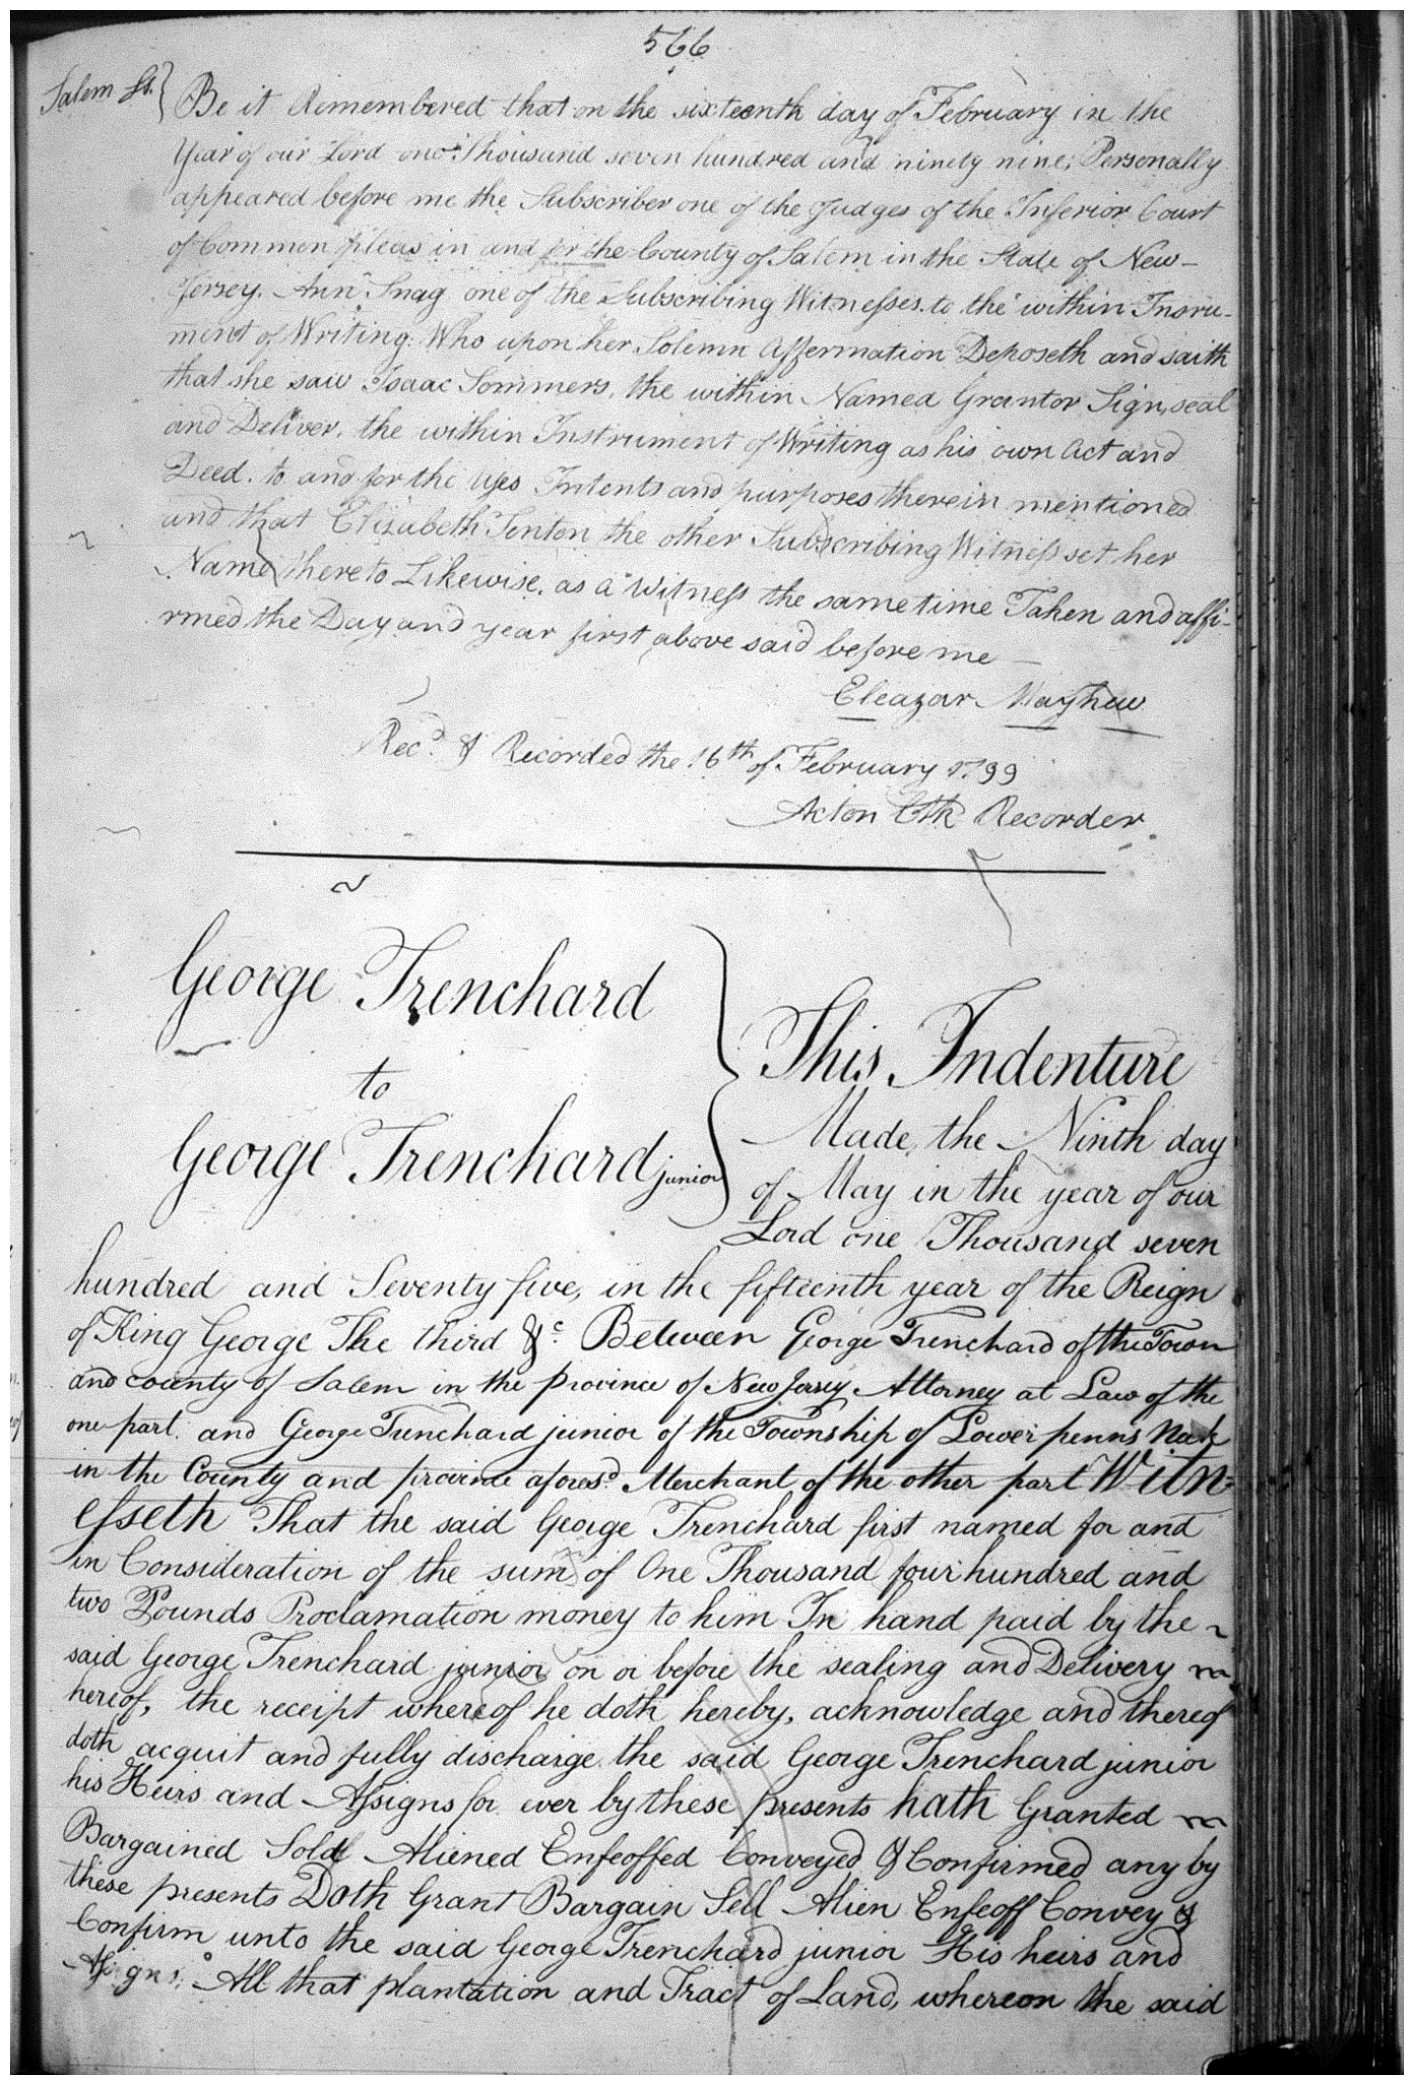 566
Salem Ss. } Be it Remembered that on the sixteenth day of February in the
Year of our Lord one Thousand seven hundred and ninety nine, Personally
appeared before me the Subscriber one of the Judges of the Inferior Court
of Common pleas in and for the County of Salem in the State of New-
Jersey. Ann Snag one of the Subscribing Witnesses to the within Insru-
ment of Writing. Who upon her Solemn Affermation Deposeth and saith
that she saw Isaac Sommers, the within Named Grantor Sign, seal
and Deliver, the within Instrument of Writing as his own Act and
Deed. to and for the Uses Intents and purposes therein mentioned
and that Elizabeth Tenton the other Subscribing Witness set her
Name thereto Likewise, as a Witness the same time Taken and affi-
rmed the Day and year first above said before me —
Eleazar Mayhew
Recd. & Recorded the 16th of February 1799
Acton Clk Recorder
George Trenchard
to
George Trenchard junior
This Indenture
Made, the Ninth day
of May in the year of our
Lord one Thousand seven
hundred and Seventy five, in the fifteenth year of the Reign
of King George The third &c. Between George Trenchard of the Town
and county of Salem in the province of New Jersey Attorney at Law of the
one part. and George Trenchard junior of the Township of Lower penns Neck
in the County and province aforesd. Merchant of the other part Witn=
esseth That the said George Trenchard first named for and
in Consideration of the sum of One Thousand four hundred and
two Pounds Proclamation money to him In hand paid by the ~
said George Trenchard junior on or before the sealing and Delivery ~
hereof, the receipt whereof he doth hereby, acknowledge and thereof
doth acquit and fully discharge the said George Trenchard junior
his Heirs and Assigns for ever by these presents hath Granted ~
Bargained Sold Aliened Enfeoffed Conveyed & Confirmed any by
these presents Doth Grant Bargain Sell Alien Enfeoff Convey &
Confirm unto the said George Trenchard junior His heirs and
Assigns. All that plantation and Tract of Land, whereon the said